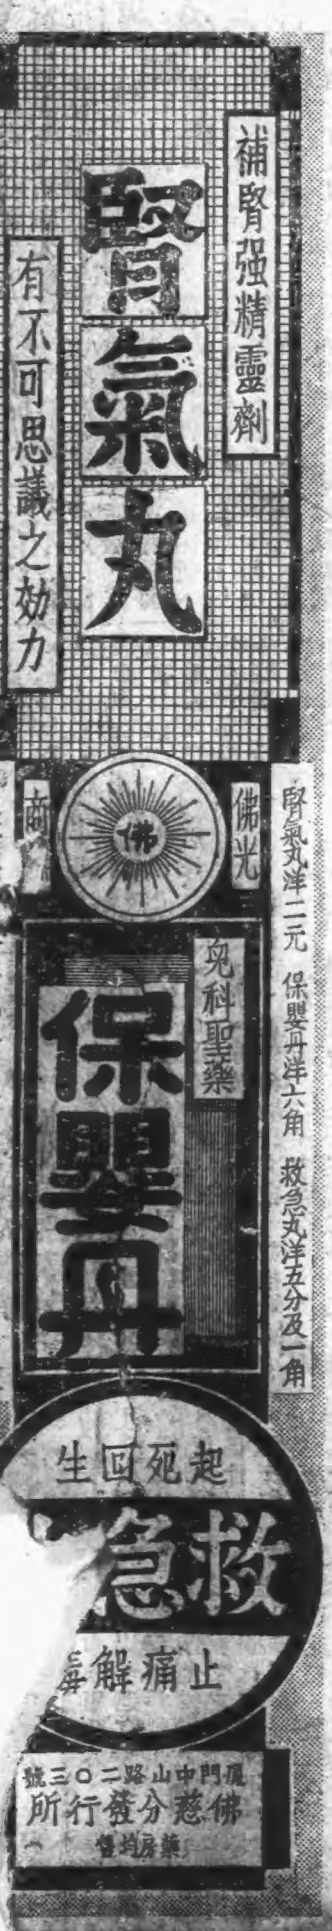 補腎强精靈劑
腎氣丸
有不可思議之効力
佛光
佛
商
腎氣丸洋二元 保嬰丹洋六角 救急丸洋五分及一角
兒科聖藥
保嬰丹
起死回生
救急
止痛解毒
厦門中山路二〇三號
佛慈分發行所
藥房均售